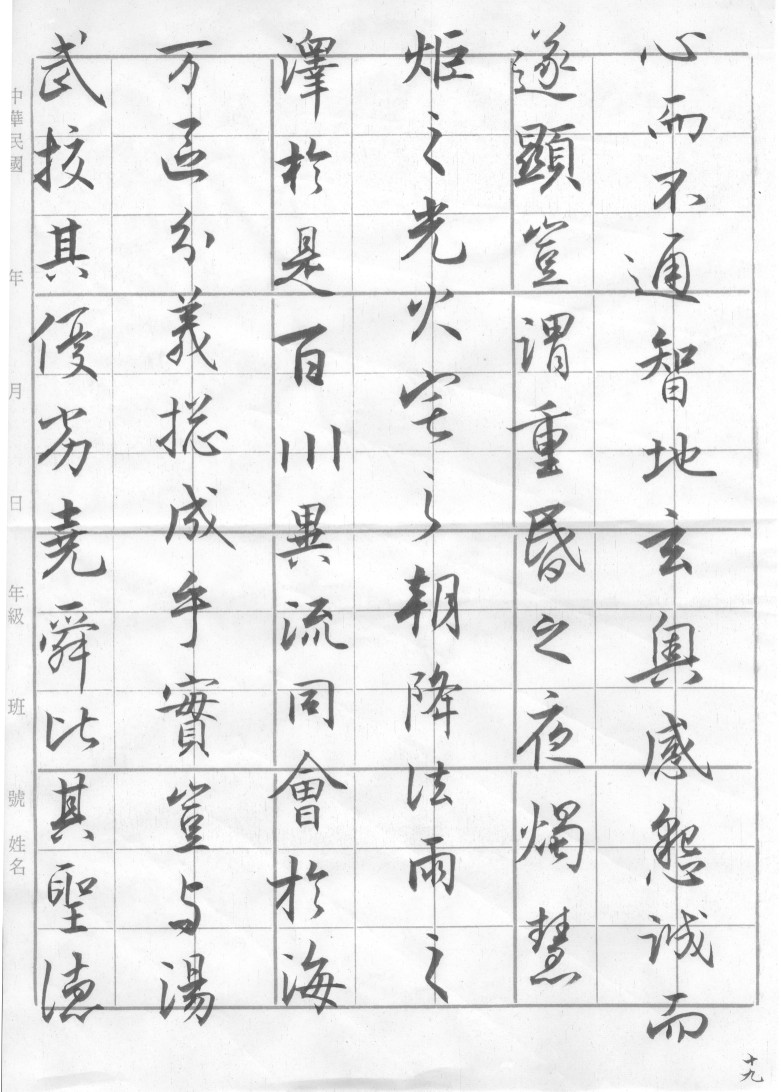 心而不通智地玄奧感懇誠而
遂顯豈謂重昏之夜燭慧
炬之光火宅之朝降法雨之
澤於是百川異流同會於海
万區分義捴成乎實豈与湯
武挍其優劣堯舜比其聖德
中華民國 年 月 日 年級 班 號 姓名
十九